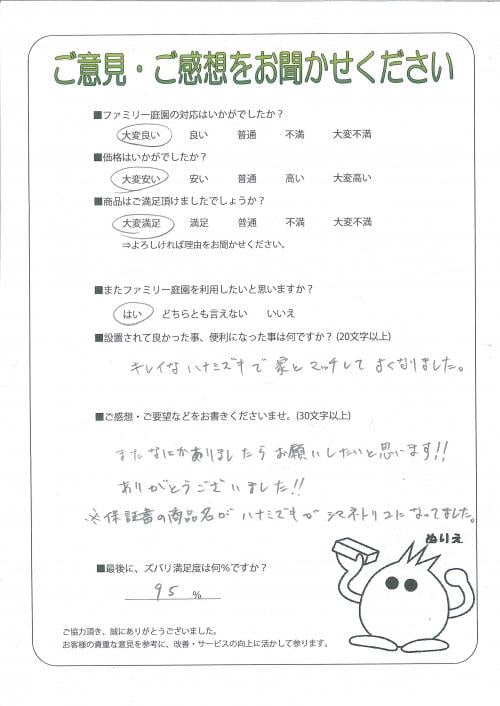 ご意見・ご感想をお聞かせください
■ファミリー庭園の対応はいかがでしたか？
大変良い 良い 普通 不満 大変不満
■価格はいかがでしたか？
大変安い 安い 普通 高い 大変高い
■商品はご満足頂けましたでしょうか？
大変満足 満足 普通 不満 大変不満
⇒よろしければ理由をお聞かせください。
■またファミリー庭園を利用したいと思いますか？
はい どちらとも言えない いいえ
■設置されて良かった事、便利になった事は何ですか？(20文字以上)
キレイなハナミズキで家とマッチしてよくなりました。
■ご感想・ご要望などをお書きくださいませ。(30文字以上)
またなにかありましたらお願いしたいと思います!!
ありがとうございました!!
※保証書の商品名がハナミズキがシマネトリコになってました。
ぬりえ
■最後に、ズバリ満足度は何%ですか？
95 %
ご協力頂き、誠にありがとうございました。
お客様の貴重な意見を参考に、改善・サービスの向上に活かして参ります。